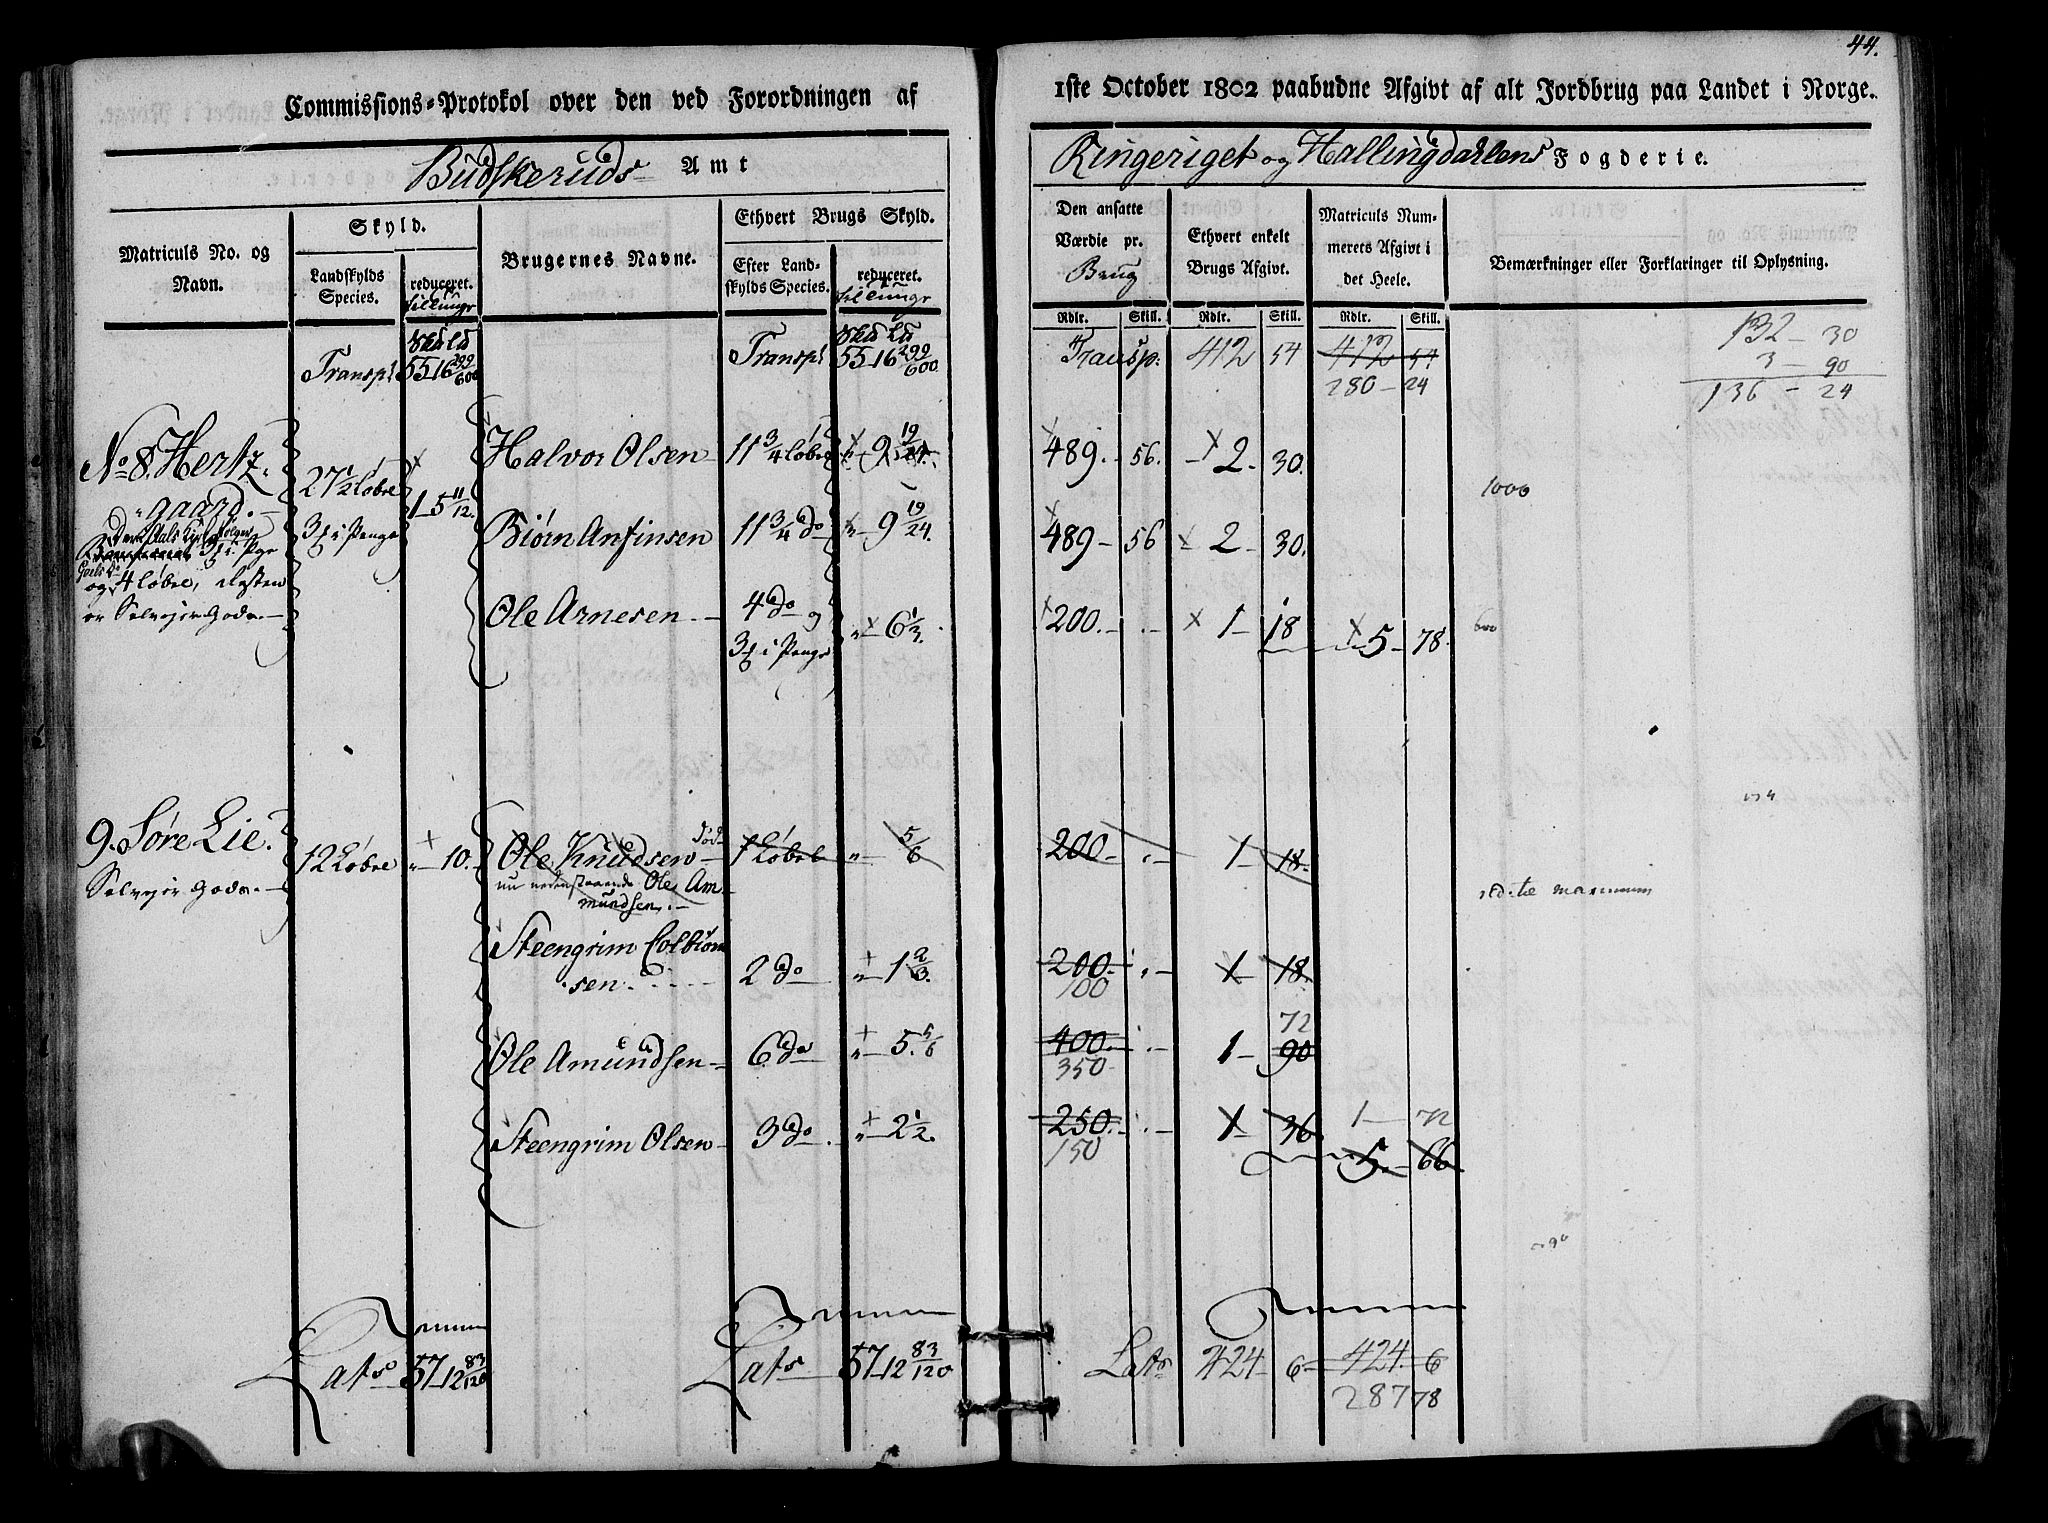 44.
Commissions-Protokol over den ved Forordningen af 1ste October 1802 paabudne Afgivt af alt Jordbrug paa Landet i Norge.
Budskeruds Amt
Ringeriget og Hallingdahlens Fogderie.
Matriculs No. og Navn.
Skyld.
Landskylds Species.
reduceret.
Brugernes Navne.
Ethvert Brugs Skyld.
Efter Landskylds Species.
reduceret.
Den ansatte Værdie pr. Brug
Ethvert enkelt Brugs Afgivt.
Matriculs Nummerets Afgivt i det Heele.
Bemærkninger eller Forklaringer til Oplysning.
Rdlr. Skill. Rdlr. Skill. Rdlr. Skill.
Transpt 55 16 299/600 Transpt 55 16 299/600 Transp. 412 54 412 54
280 - 24
132 - 30
3 - 90
136 - 24
No 8. Hertz- 27 1/2 Løbe 1 - 5 11/12. Halvor Olsen 11 3/4 Løbe 9 19/24. 489. 56. 2. 30.
gaard. 3 i Penge
1000
Biørn Anfinsen 11 3/4 do 9 19/24. 489 - 56 2 - 30.
og 4 Løbe, Resten
er Selveier Gods.
Ole Arnesen 4 do og 6 1/3. 200. 1 - 18 5 - 78.
3 i Penge
600
9. Søre Lie. 12 Løbe 10. Ole Knudsen død 1 Løbe 5/6 200 1 - 18
Selveier Gods. nu nedenstaaende Ole Am-
mundsen.
til maximum
Steengrim Colbiørn
sen. 2 do 1 2/3. 200. 1 - 18.
100
72
Ole Amundsen 6 do 5. 5/6 400. 1 - 90
350
Steengrim Olsen 3 do. 2 1/2. 250. 1 - 36 1 - 72
150 5 - 66
Lats 57 12 83/120 Lats 57 12 83/120 Lats 424 6 424. 6
287 78